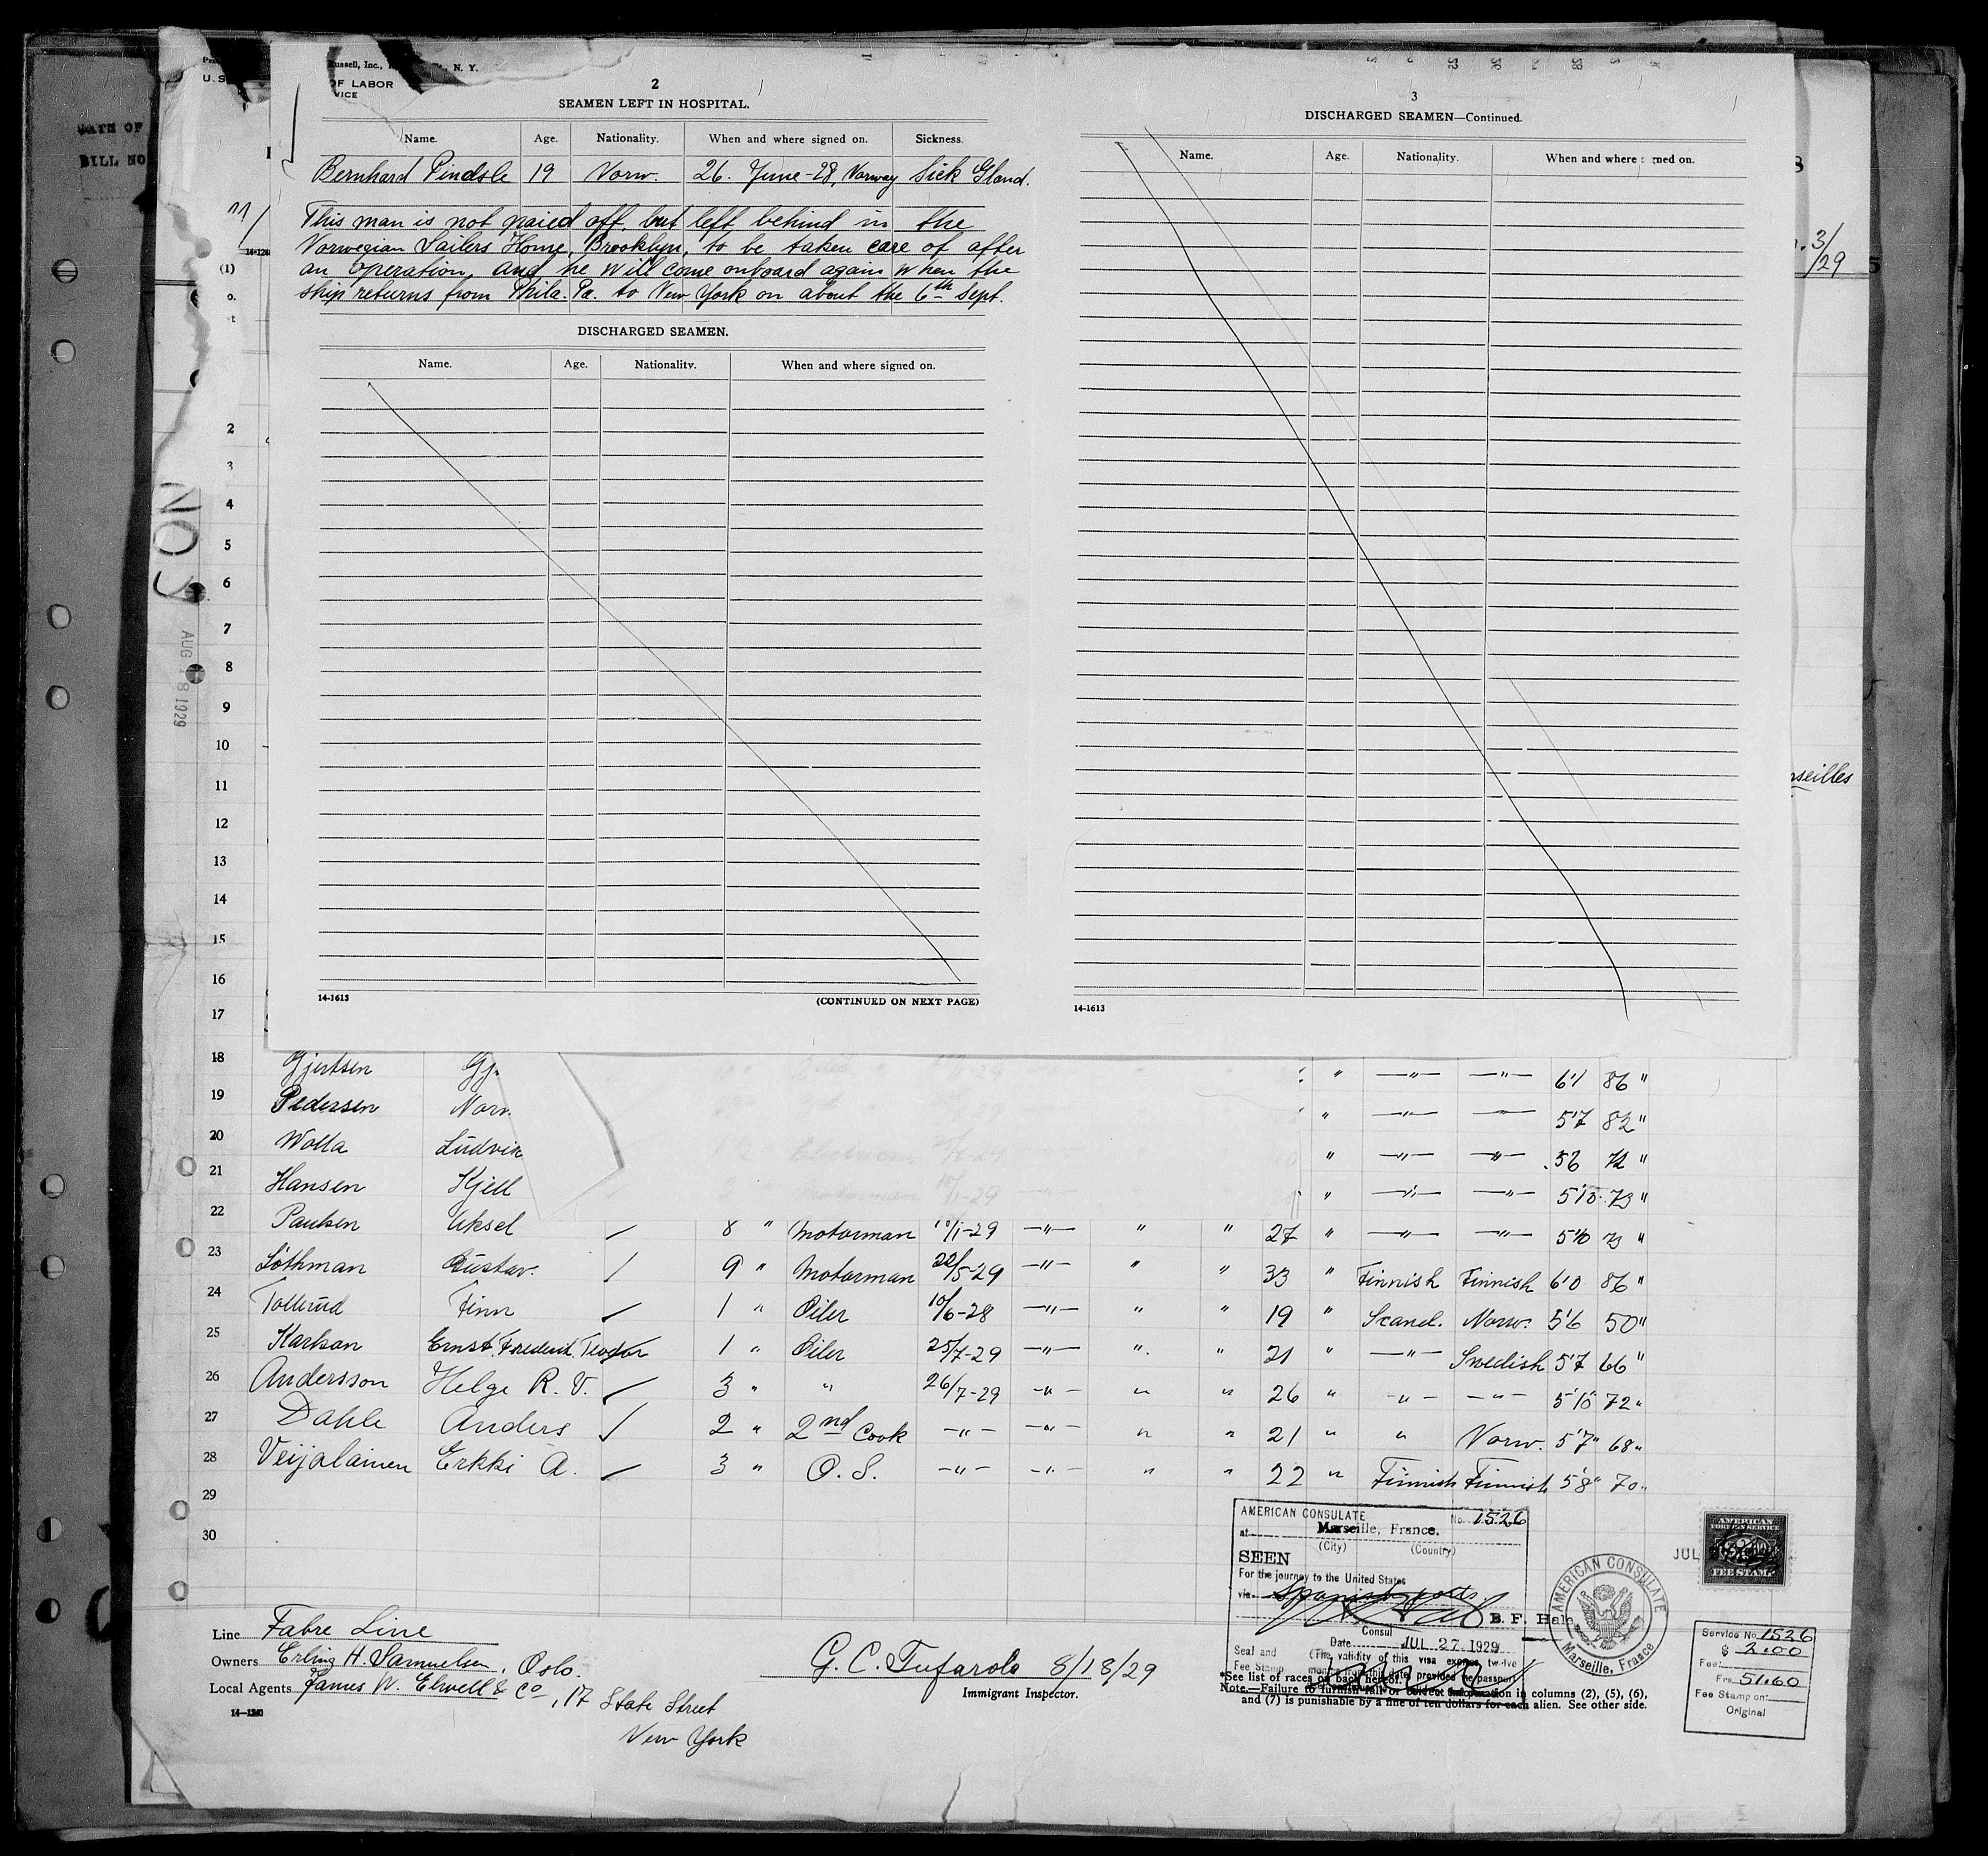 Russell, Inc., N. Y.
U. S.
OF LABOR
VICE
2
SEAMEN LEFT IN HOSPITAL.
Name. Age. Nationality. When and where signed on. Sickness.
Bernhard Pindsle 19 Norw. 26. June-28, Norway Sick Gland.
This man is not paied off, but left behind in the
Norwegian Sailers Home, Brooklyn, to be taken care of after
an operation, and he will come onboard again when the
ship returns from Phila. Pa. to New York on about the 6th Sept.
DISCHARGED SEAMEN.
Name. Age. Nationality. When and where signed on.
14-1613 (CONTINUED ON NEXT PAGE)
3
DISCHARGED SEAMEN—Continued.
Name. Age. Nationality. When and where ned on.
14-1613
BILL NO
(1)
AUG 18 1929
3/29
rseilles
2
3
4
5
6
7
8
9
10
11
12
13
14
15
16
17
18 Gjertsen Gj. " —"— —"— 6'1 86 "
19 Pedersen Norm " —"— —"— 5'7 82 "
20 Wolla Ludvik " —"— —"— 5'6 72 "
21 Hansen Kjell " —"— —"— 5'10 73 "
22 Paulsen Aksel 8 " Motorman 10/1-29 —"— " " 27 " —"— —"— 5'10 73 "
23 Löthman Gustav. 9 " Motorman 22/5-29 —"— " " 33 " Finnish Finnish 6'0 86 "
24 Tollerud Finn 1 " Oiler 10/6-28 —"— " " 19 " Scand. Norw. 5'6 50 "
25 Karlson Ernst Frederik Teodor 1 " Oiler 25/7-29 —"— " " 21 " —"— Swedish 5'7 66 "
26 Andersson Helge R. V. 3 " " 26/7-29 —"— " " 26 " —"— —"— 5'10 72 "
27 Dahle Anders 2 " 2nd Cook —"— —"— " " 21 " " Norw. 5'7" 68 "
28 Veijalainen Erkki A. 3 " O. S. —"— —"— " " 22 " Finnish Finnish 5'8" 70 "
29
30
AMERICAN CONSULATE No. 1526
at Marseille, France.
(City) (Country)
SEEN
For the journey to the United States
via Spanish ports
B. F. Hale
Consul
Date JUL 27 1929
Seal and
Fee Stamp
(The validity of this visa expires twelve
months from this date, provided the passport
AMERICAN CONSULATE
Marseille, France
JUL
AMERICAN
FOREIGN SERVICE
FEE STAMP
Service No. 1526
Fee: $ 2.00
Frs. 51.60
Fee Stamp on:
Original
Line Fabre Line
Owners Erling H. Samuelsen, Oslo.
Local Agents James W. Elwell & Co, 17 State Street
New York
14—1240
G. C. Tufarolo 8/18/29
Immigrant Inspector.
*See list of races on back hereof.
Note.—Failure to furnish full or correct information in columns (2), (5), (6),
and (7) is punishable by a fine of ten dollars for each alien. See other side.